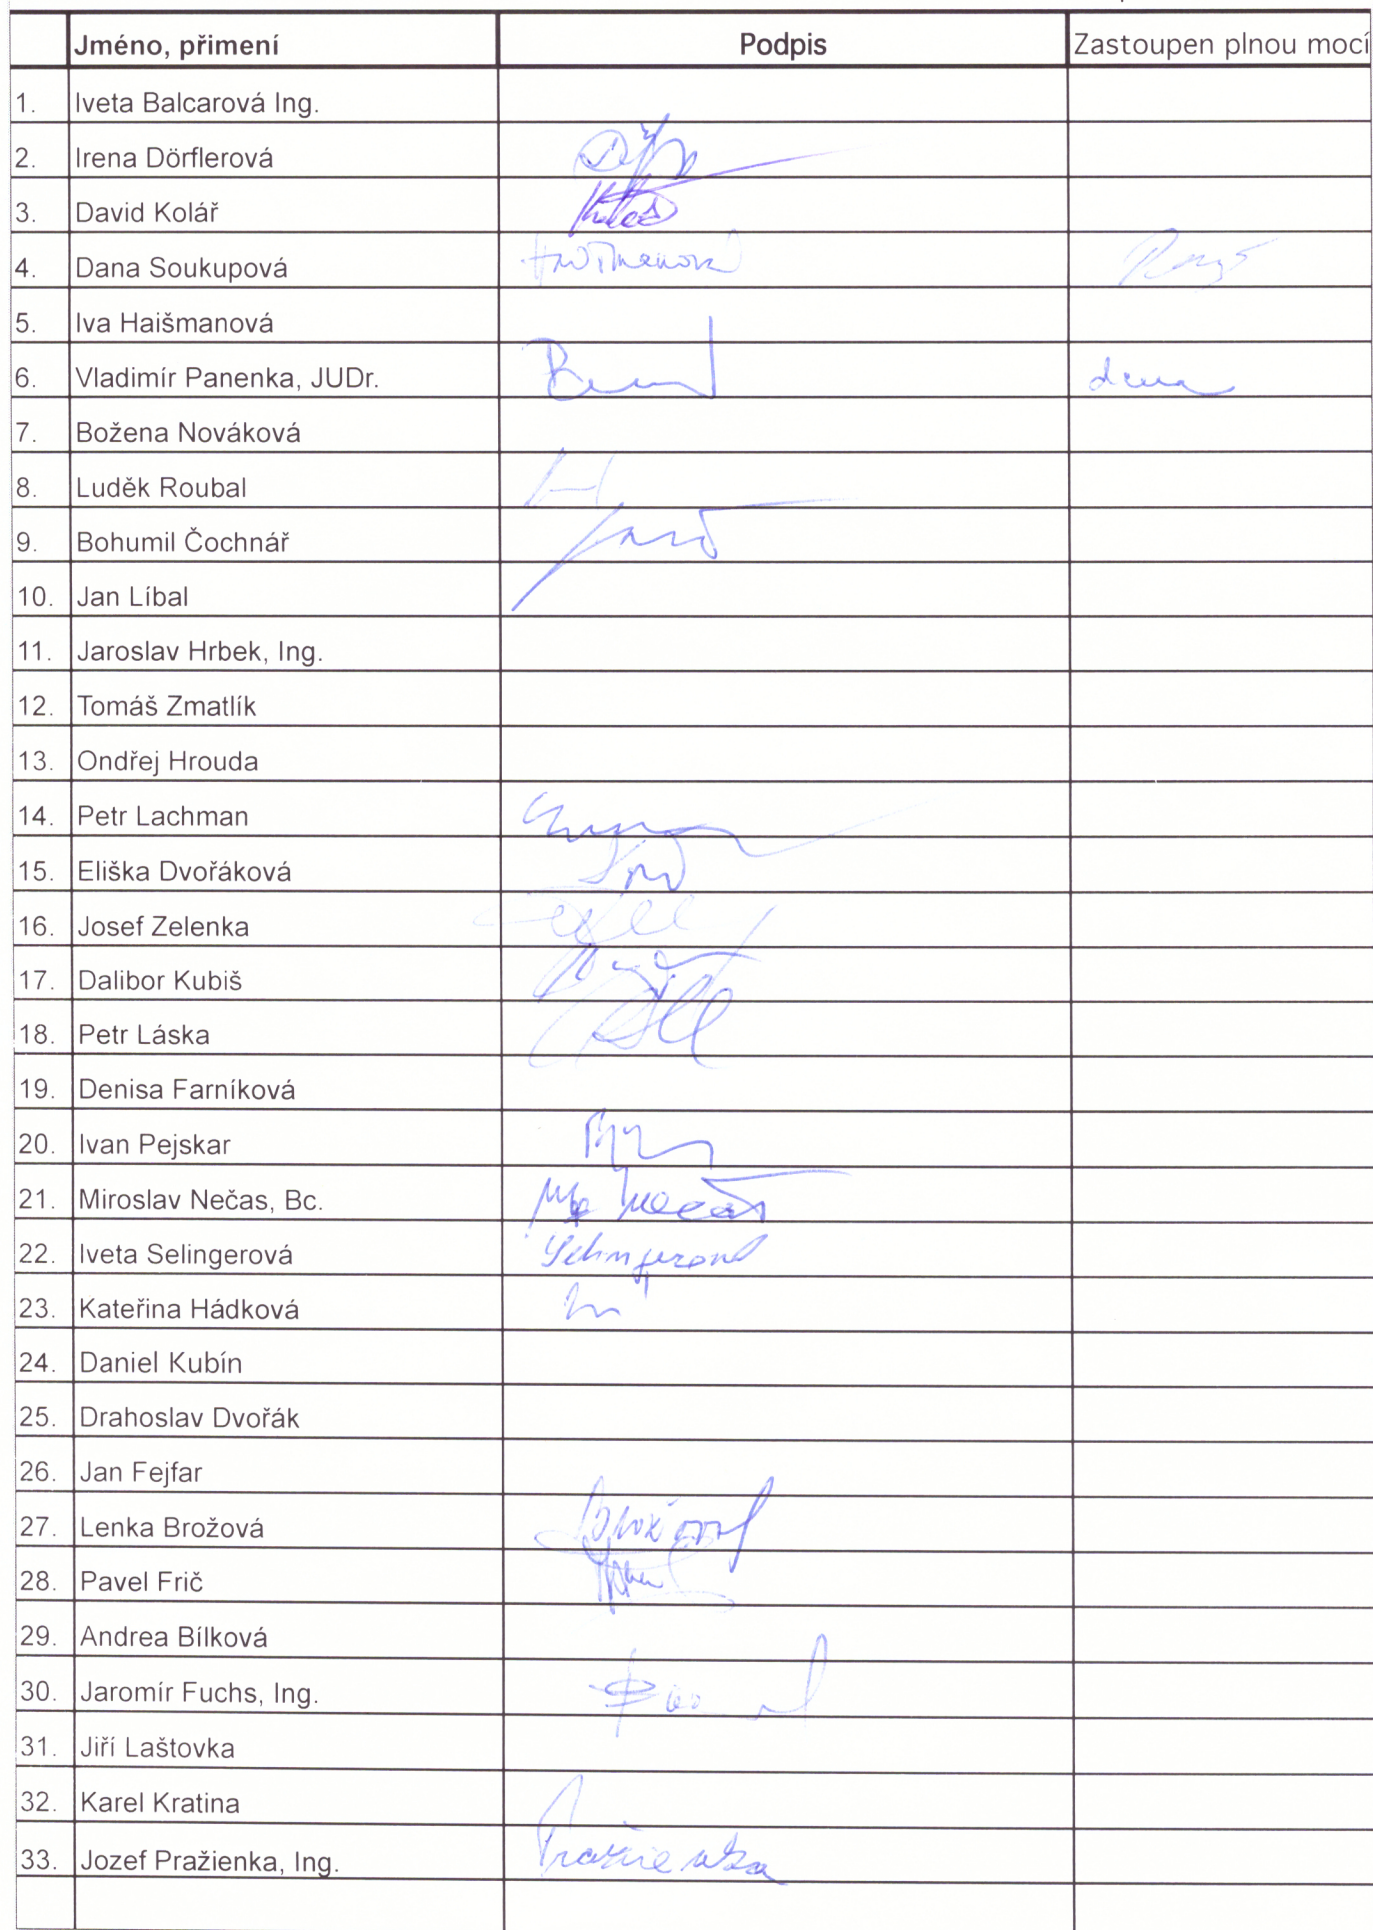 Jméno, přimení Podpis Zastoupen plnou mocí
1. Iveta Balcarová Ing.
2. Irena Dörflerová
3. David Kolář
4. Dana Soukupová
5. Iva Haišmanová
6. Vladimír Panenka, JUDr.
7. Božena Nováková
8. Luděk Roubal
9. Bohumil Čochnář
10. Jan Líbal
11. Jaroslav Hrbek, Ing.
12. Tomáš Zmatlík
13. Ondřej Hrouda
14. Petr Lachman
15. Eliška Dvořáková
16. Josef Zelenka
17. Dalibor Kubiš
18. Petr Láska
19. Denisa Farníková
20. Ivan Pejskar
21. Miroslav Nečas, Bc. Nečas
22. Iveta Selingerová Selingerová
23. Kateřina Hádková
24. Daniel Kubín
25. Drahoslav Dvořák
26. Jan Fejfar
27. Lenka Brožová Brožová
28. Pavel Frič
29. Andrea Bílková
30. Jaromír Fuchs, Ing.
31. Jiří Laštovka
32. Karel Kratina
33. Jozef Pražienka, Ing. Pražienka